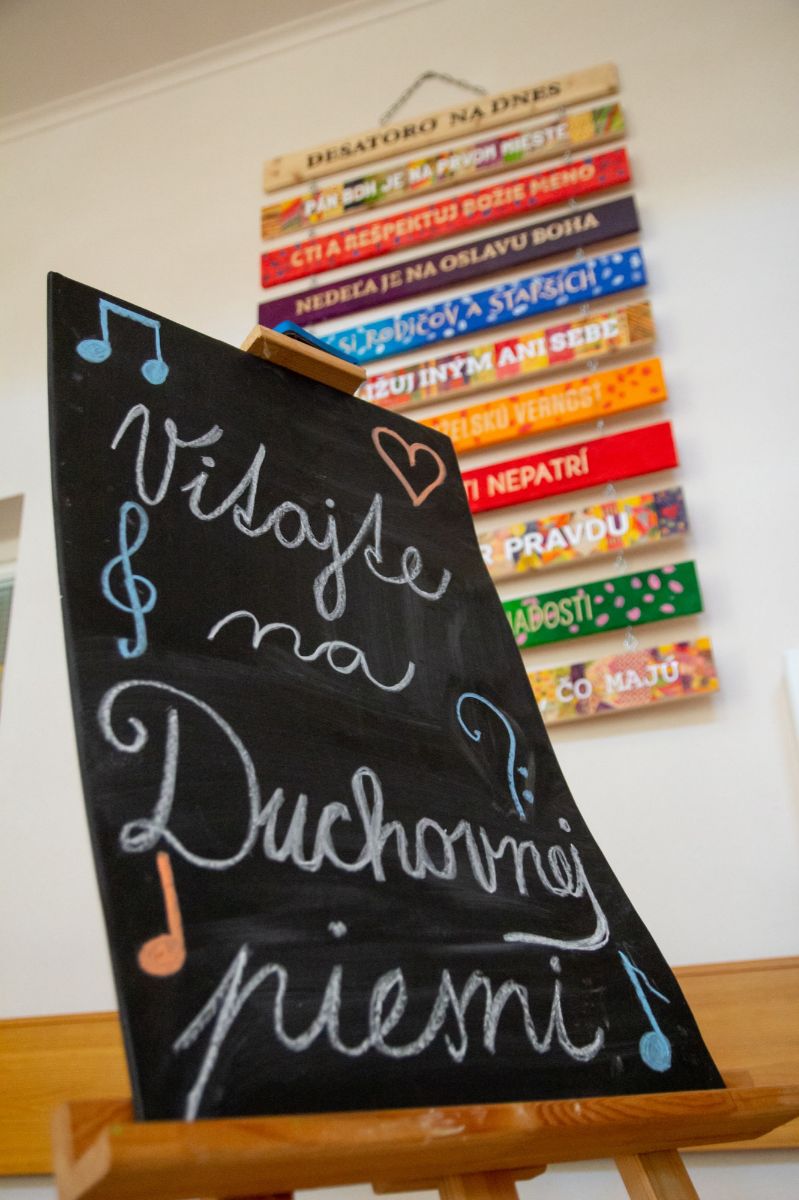 DESATORO NA DNES
PÁN BOH JE NA PRVOM MIESTE
CTI A REŠPEKTUJ BOŽIE MENO
NEDEĽA JE NA OSLAVU BOHA
SI RODIČOV A STARŠÍCH
INÝM ANI SEBE
VERNOSŤ
NEPATRÍ
PRAVDU
ČO MAJÚ
Vitajte
na
Duchovnej
piesni